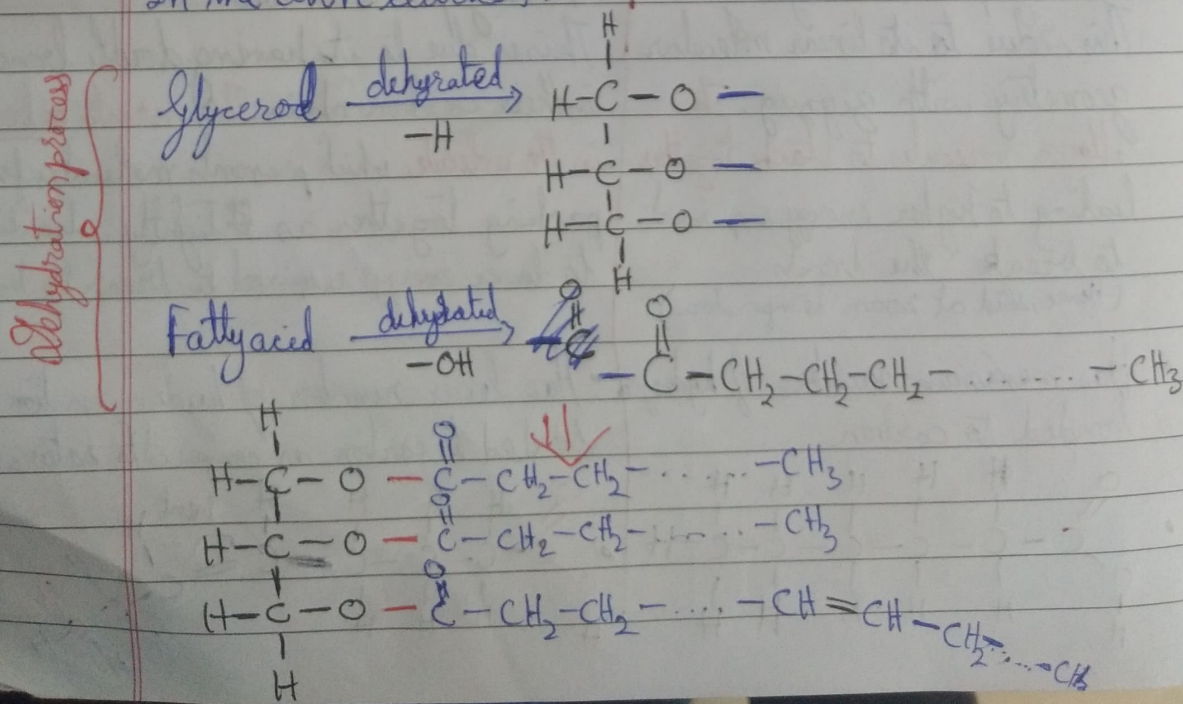 Dehydration process
Glycerol dehyrated → H
-H
H-C-O-
H-C-O-
H-C-O-
H
Fatty acid dehydrated → O
-OH
-C-CH2-CH2-CH2-........-CH3
H
O
H-C-O-C-CH2-CH2-......-CH3
O
H-C-O-C-CH2-CH2-......-CH3
O
H-C-O-C-CH2-CH2-....-CH=CH-CH2.....-CH3
H